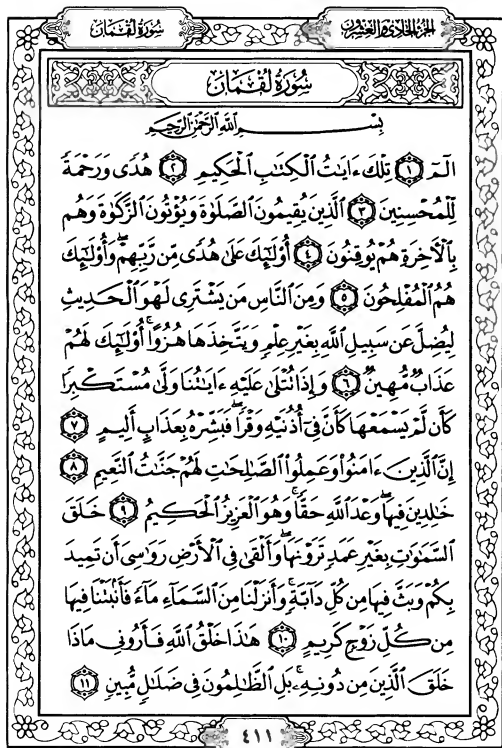 الجزء الحادي والعشرون
سورة لقمان
سُورَةُ لُقْمَانَ
بِسْمِ اللَّهِ الرَّحْمَٰنِ الرَّحِيمِ
الٓمٓ ١ تِلْكَ ءَايَٰتُ ٱلْكِتَٰبِ ٱلْحَكِيمِ ٢ هُدًى وَرَحْمَةً
لِّلْمُحْسِنِينَ ٣ ٱلَّذِينَ يُقِيمُونَ ٱلصَّلَوٰةَ وَيُؤْتُونَ ٱلزَّكَوٰةَ وَهُم
بِٱلْأَخِرَةِ هُمْ يُوقِنُونَ ٤ أُو۟لَٰٓئِكَ عَلَىٰ هُدًى مِّن رَّبِّهِمْ ۖ وَأُو۟لَٰٓئِكَ
هُمُ ٱلْمُفْلِحُونَ ٥ وَمِنَ ٱلنَّاسِ مَن يَشْتَرِى لَهْوَ ٱلْحَدِيثِ
لِيُضِلَّ عَن سَبِيلِ ٱللَّهِ بِغَيْرِ عِلْمٍ وَيَتَّخِذَهَا هُزُوًا ۚ أُو۟لَٰٓئِكَ لَهُمْ
عَذَابٌ مُّهِينٌ ٦ وَإِذَا تُتْلَىٰ عَلَيْهِ ءَايَٰتُنَا وَلَّىٰ مُسْتَكْبِرًا
كَأَن لَّمْ يَسْمَعْهَا كَأَنَّ فِىٓ أُذُنَيْهِ وَقْرًا ۖ فَبَشِّرْهُ بِعَذَابٍ أَلِيمٍ ٧
إِنَّ ٱلَّذِينَ ءَامَنُوا۟ وَعَمِلُوا۟ ٱلصَّٰلِحَٰتِ لَهُمْ جَنَّٰتُ ٱلنَّعِيمِ ٨
خَٰلِدِينَ فِيهَا ۖ وَعْدَ ٱللَّهِ حَقًّا ۚ وَهُوَ ٱلْعَزِيزُ ٱلْحَكِيمُ ٩ خَلَقَ
ٱلسَّمَٰوَٰتِ بِغَيْرِ عَمَدٍ تَرَوْنَهَا ۖ وَأَلْقَىٰ فِى ٱلْأَرْضِ رَوَٰسِىَ أَن تَمِيدَ
بِكُمْ وَبَثَّ فِيهَا مِن كُلِّ دَآبَّةٍ ۚ وَأَنزَلْنَا مِنَ ٱلسَّمَآءِ مَآءً فَأَنۢبَتْنَا فِيهَا
مِن كُلِّ زَوْجٍ كَرِيمٍ ١٠ هَٰذَا خَلْقُ ٱللَّهِ فَأَرُونِى مَاذَا
خَلَقَ ٱلَّذِينَ مِن دُونِهِۦ ۚ بَلِ ٱلظَّٰلِمُونَ فِى ضَلَٰلٍ مُّبِينٍ ١١
٤١١